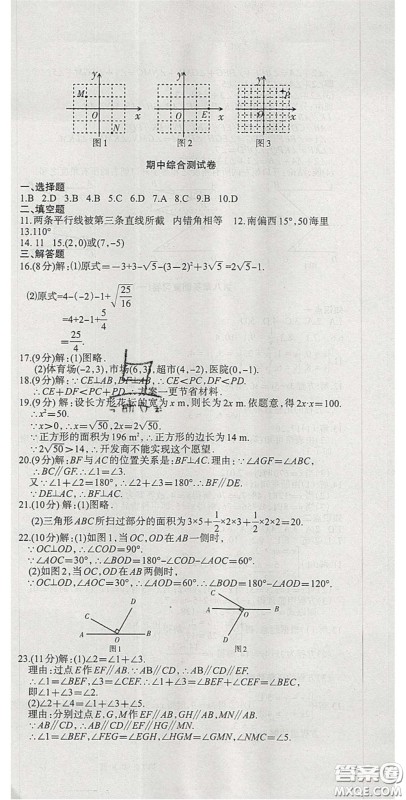 y
M
O
x
N
图1
y
O
E
x
图2
y
O
x
图3
期中综合测试卷
一、选择题
1.B 2.D 3.B 4.B 5.C 6.D 7.A 8.C 9.B 10.D
二、填空题
11.两条平行线被第三条直线所截 内错角相等 12.南偏西15°,50海里
13.110°
14. 11 15.(2,0)或(7,-5)
三、解答题
16.(8分)解:(1)原式=-3+3-√5-(3-2)²+3√5=2√5-1.
(2)原式=4-(-2)-1+√(25/16)
=4+2-1+5/4
=25/4.
17.(9分)解:(1)图略.
(2)体育场(-2,3),市场(6,3),超市(4,-2),医院(0,-1).
18.(9分)解:∵CE⊥AB,DF⊥AB,∴CE<PC,DF<PD.
∴CE+DF<PC+PD.∴方案一更节省材料.
19.(9分)解:设长方形花坛的宽为x m,则长为2x m.依题意,得2x·x=100.
∴x²=50.
∵x>0,∴x=√50,2x=2√50.
∵正方形的面积为196 m²,∴正方形的边长为14 m.
∵2√50>14,∴开发商不能实现这个愿望.
20.(9分)解:BF与AC的位置关系是:BF⊥AC.理由:∵∠AGF=∠ABC,
∴BC∥GF.∴∠1=∠3.
又∵∠1+∠2=180°,∴∠2+∠3=180°.∴BF∥DE.
∵DE⊥AC,∴BF⊥AC.
21.(10分)解:(1)图略.
(2)三角形ABC所扫过部分的面积为3×5+1/2×2×3+1/2×2×2=20.
22.(10分)解:(1)如图1,当OC,OD在AB一侧时,
∵OC⊥OD,∴∠COD=90°.
∵∠AOC=30°,∴∠BOD=180°-∠COD-∠AOC=60°.
(2)如图2,当OC,OD在AB两侧时,
∵OC⊥OD,∠AOC=30°,∴∠AOD=60°.∴∠BOD=180°-∠AOD=120°.
D
C
A
O
B
图1
C
A
O
B
D
图2
23.(11分)解:(1)∠2=∠1+∠3.
理由:过点E作EF∥AB.∵AB∥CD,∴AB∥CD∥EF.
∴∠1=∠BEF,∠3=∠CEF.∴∠1+∠3=∠BEF+∠CEF=∠BEC,
即∠2=∠1+∠3.
(2)∠2+∠4=∠1+∠3+∠5.
理由:分别过点E,G,M作EF∥AB,GH∥AB,MN∥AB.
∵AB∥CD,∴AB∥CD∥EF∥HG∥MN.
∴∠1=∠BEF,∠FEG=∠EGH,∠HGM=∠GMN,∠NMC=∠5.
答案圈
MXQE.COM